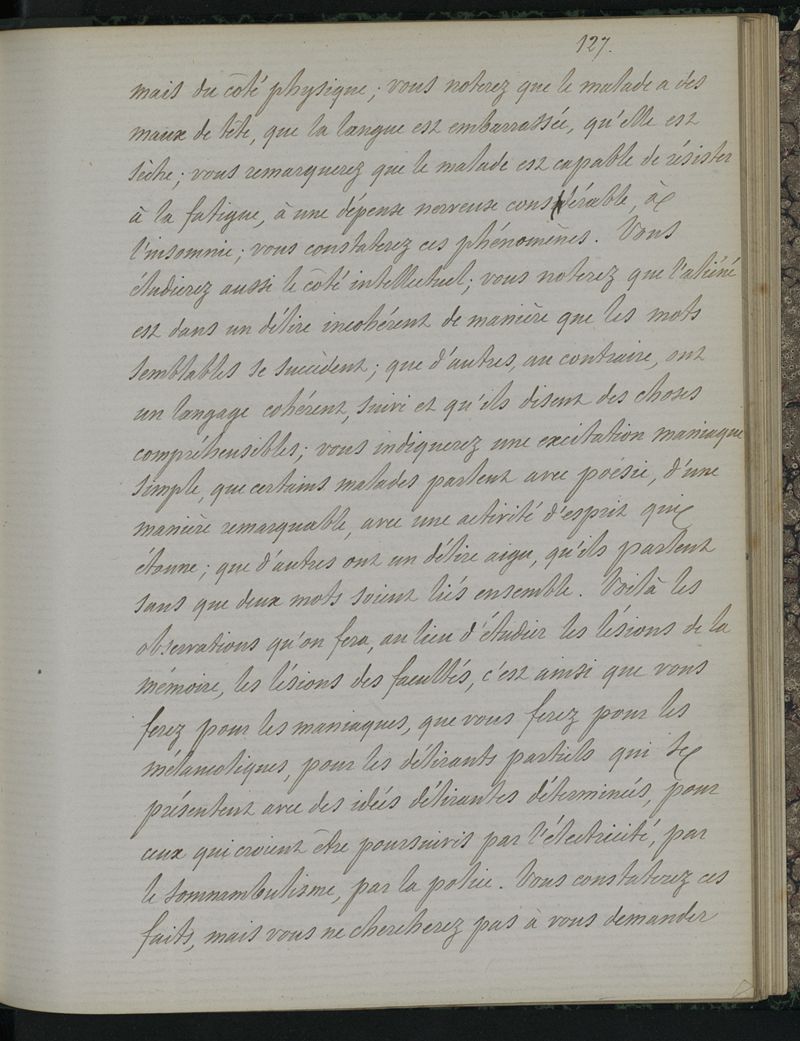 127.
mais du côté physique ; vous noterez que le malade a des
maux de tête, que la langue est embarrassée, qu'elle est
sèche ; vous remarquerez que le malade est capable de résister
à la fatigue, à une dépense nerveuse considérable, à
l'insomnie ; vous constaterez ces phénomènes. Vous
étudierez aussi le côté intellectuel ; vous noterez que l'aliéné
est dans un délire incohérent de manière que les mots
semblables se succèdent ; que d'autres, au contraire, ont
un langage cohérent, suivi et qu'ils disent des choses
compréhensibles ; vous indiquerez une excitation maniaque
simple, que certains malades parlent avec poésie, d'une
manière remarquable, avec une activité d'esprit qui
étonne ; que d'autres ont un délire aigu, qu'ils parlent
sans que deux mots soient liés ensemble. Voilà les
observations qu'on fera, au lieu d'étudier les lésions de la
mémoire, les lésions des facultés, c'est ainsi que vous
ferez pour les maniaques, que vous ferez pour les
mélancoliques, pour les délirants partiels qui se
présentent avec des idées délirantes déterminées, pour
ceux qui croient être poursuivis par l'électricité, par
le somnambulisme, par la police. Vous constaterez ces
faits, mais vous ne chercherez pas à vous demander